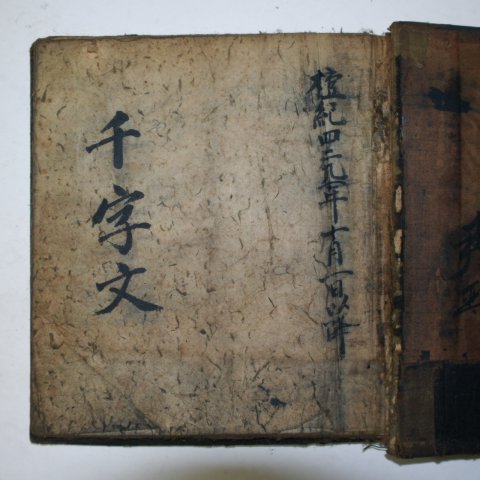 檀紀四二九七年十月一日以降
千字文